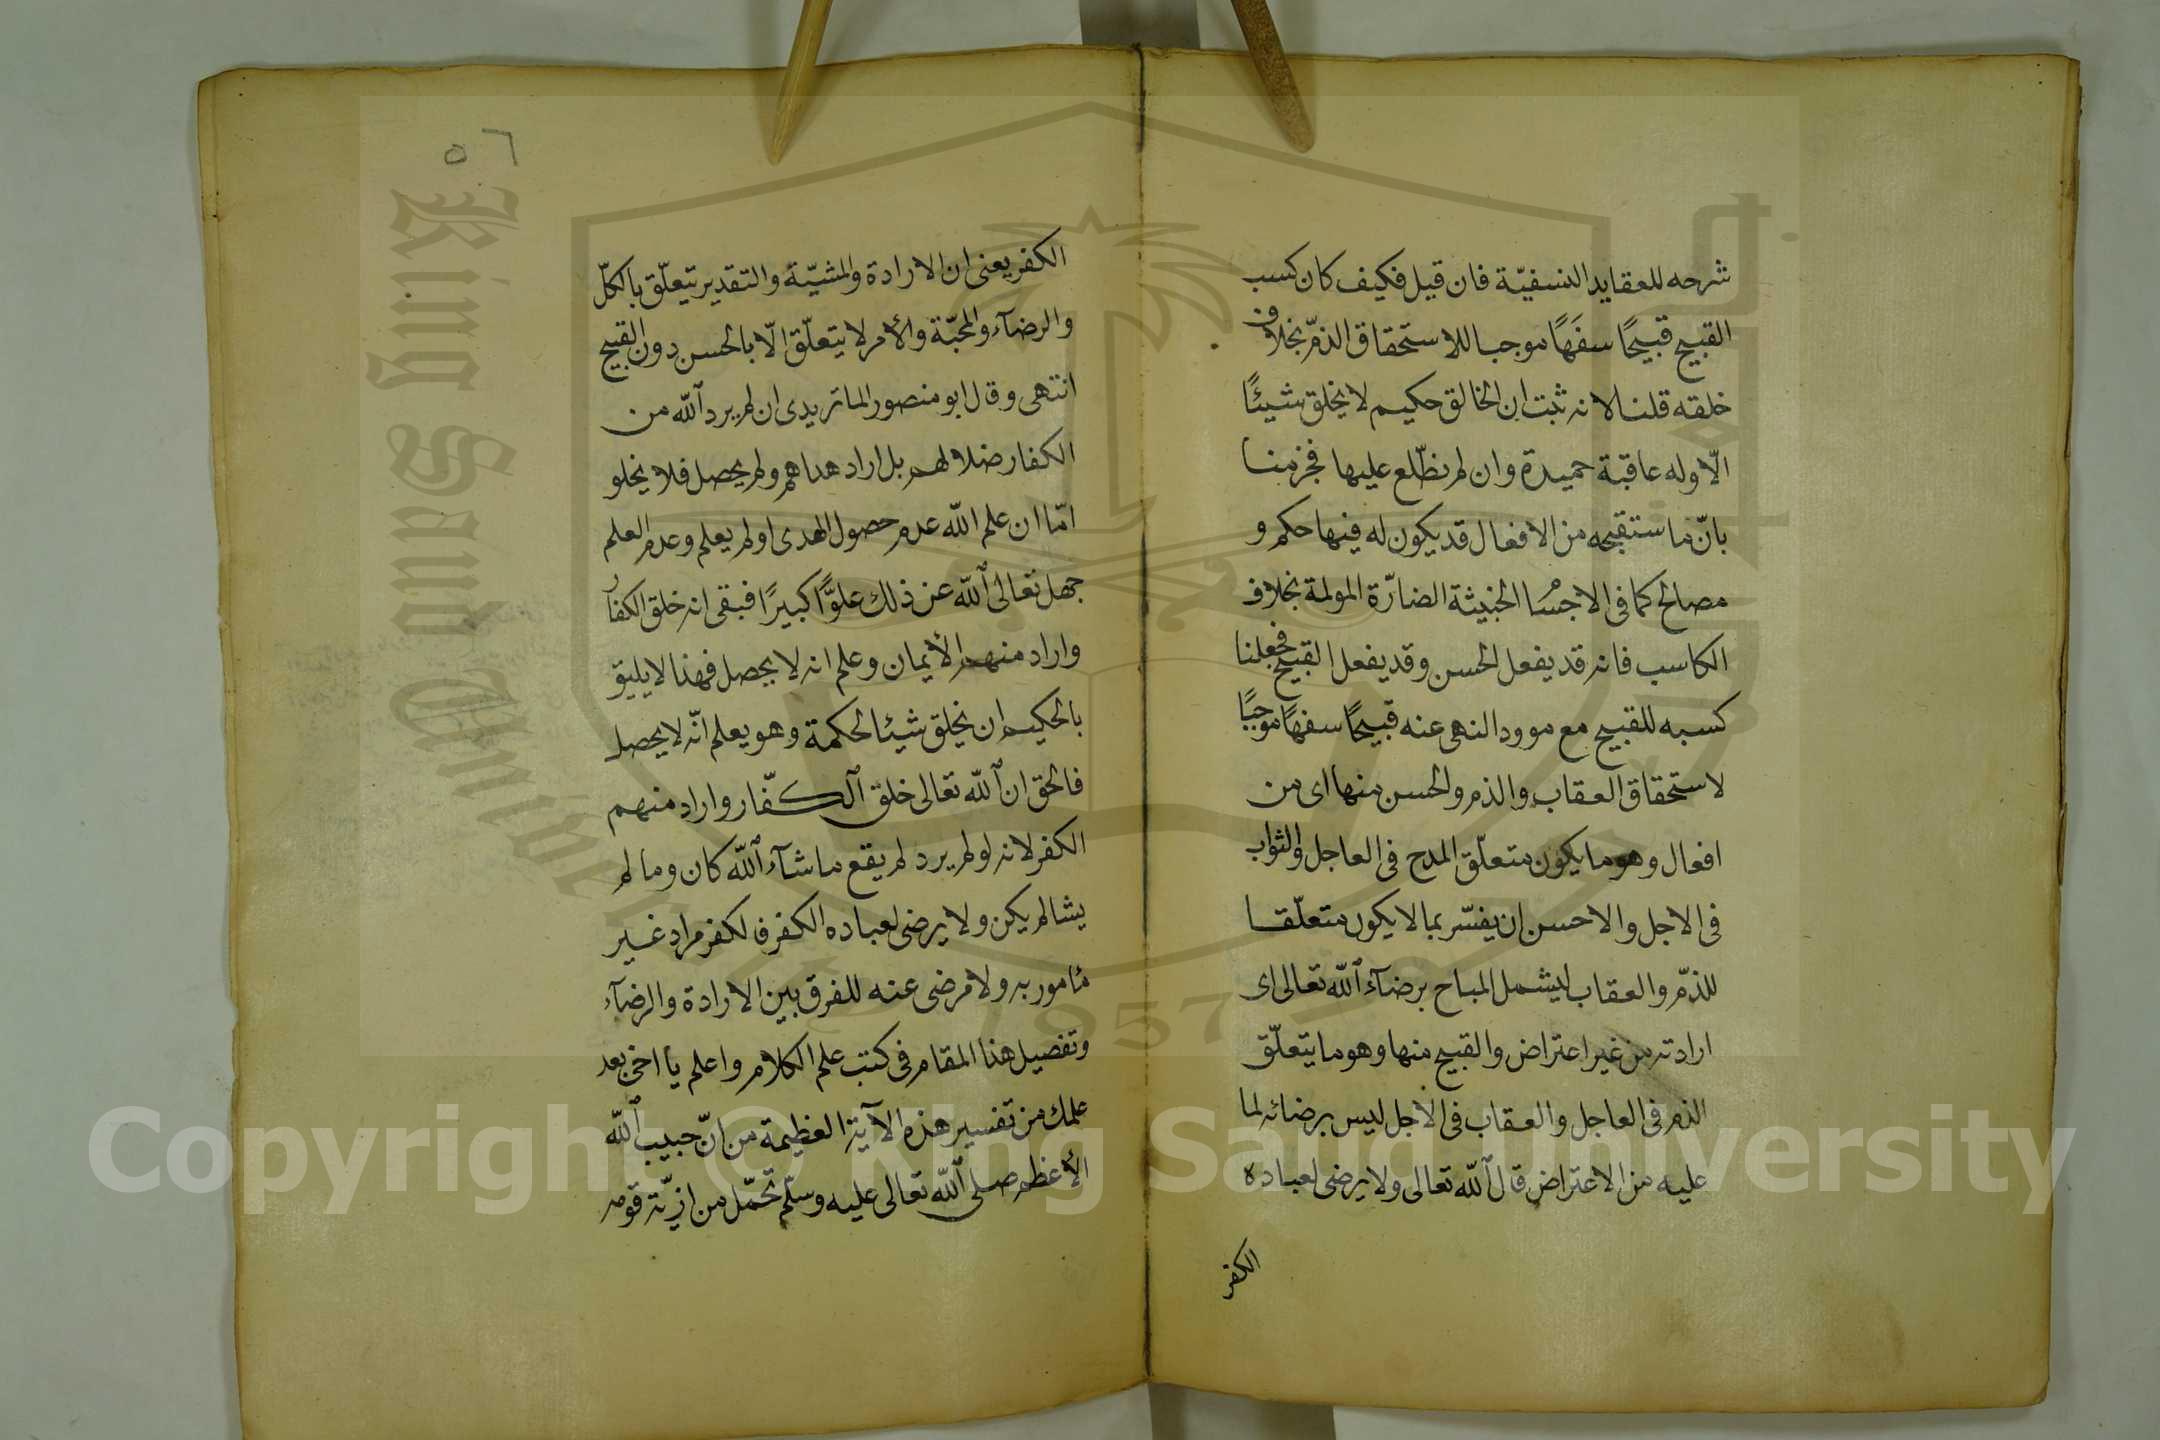 شرحه للعقايد النسفيّة فان قيل فكيف كان كسب
القبيح قبيحًا سفَهًا موجبا للاستحقاق الذمّ بخلاف
خلقه قلنا لانه ثبت ان الخالق حكيم لا يخلق شيئًا
الّا وله عاقبة حميدة وان لم نطّلع عليها فجزمنا
بانّ ما ستقبحه من الافعال قد يكون له فيها حكم و
مصالح كما في الاجسُا الخبيثة الضارّة المولمة بخلاف
الكاسب فانه قد يفعل الحسن وقد يفعل القبيح فجعلنا
كسبه للقبيح مع موود النهى عنه قبيحًا سفهًا موجبًا
لاستحقاق العقاب والذم والحسن منها اى من
افعال وهو ما يكون متعلّق المدح فى العاجل والثواب
فى الاجل والاحسن ان يفسّر بما لا يكون متعلّقا
للذمّ والعقاب ليشمل المباح برضآء الله تعالى اى
ارادته من غير اعتراض والقبيح منها وهو ما يتعلّق
الذم فى العاجل والعقاب فى الاجل ليس برضائه لما
عليه من الاعتراض قال الله تعالى ولا يرضى لعباده
الكفر
٥٦
الكفر يعنى ان الارادة والمشيّة والتقدير يتعلّق بالكلّ
والرضآء والمحبّة والأمر لا يتعلّق الّا بالحسن دون القبيح
انتهى وقال ابو منصور الماتريدى ان لم يرد الله من
الكفار ضلالهم بل اراد هداهم ولم يحصل فلا يخلو
امّا ان علم الله عدم حصول الهدى اولم يعلم وعدم العلم
جهل تعالى الله عن ذلك علوًّا كبيرًا فبقى انه خلق الكفار
واراد منهم الأيمان وعلم انه لا يحصل فهذا لا يليق
بالحكيم ان يخلق شيئا لحكمة وهو يعلم انّه لا يحصل
فالحق ان الله تعالى خلق الكفّار واراد منهم
الكفر لانه لو لم يرد لم يقع ما شآء الله كان وما لم
يشا لم يكن ولا يرضى لعباده الكفر فالكفر مراد غير
مامور به ولا مرضى عنه للفرق بين الارادة والرضآء
وتفصيل هذا المقام فى كتب علم الكلام واعلم يا اخى بعد
علمك من تفسير هذه الآية العظيمة من انّ حبيب الله
الأعظم صلى الله تعالى عليه وسلّم تحمّل من اذيّة قومه
Copyright © King Saud University
King Saud University
1957